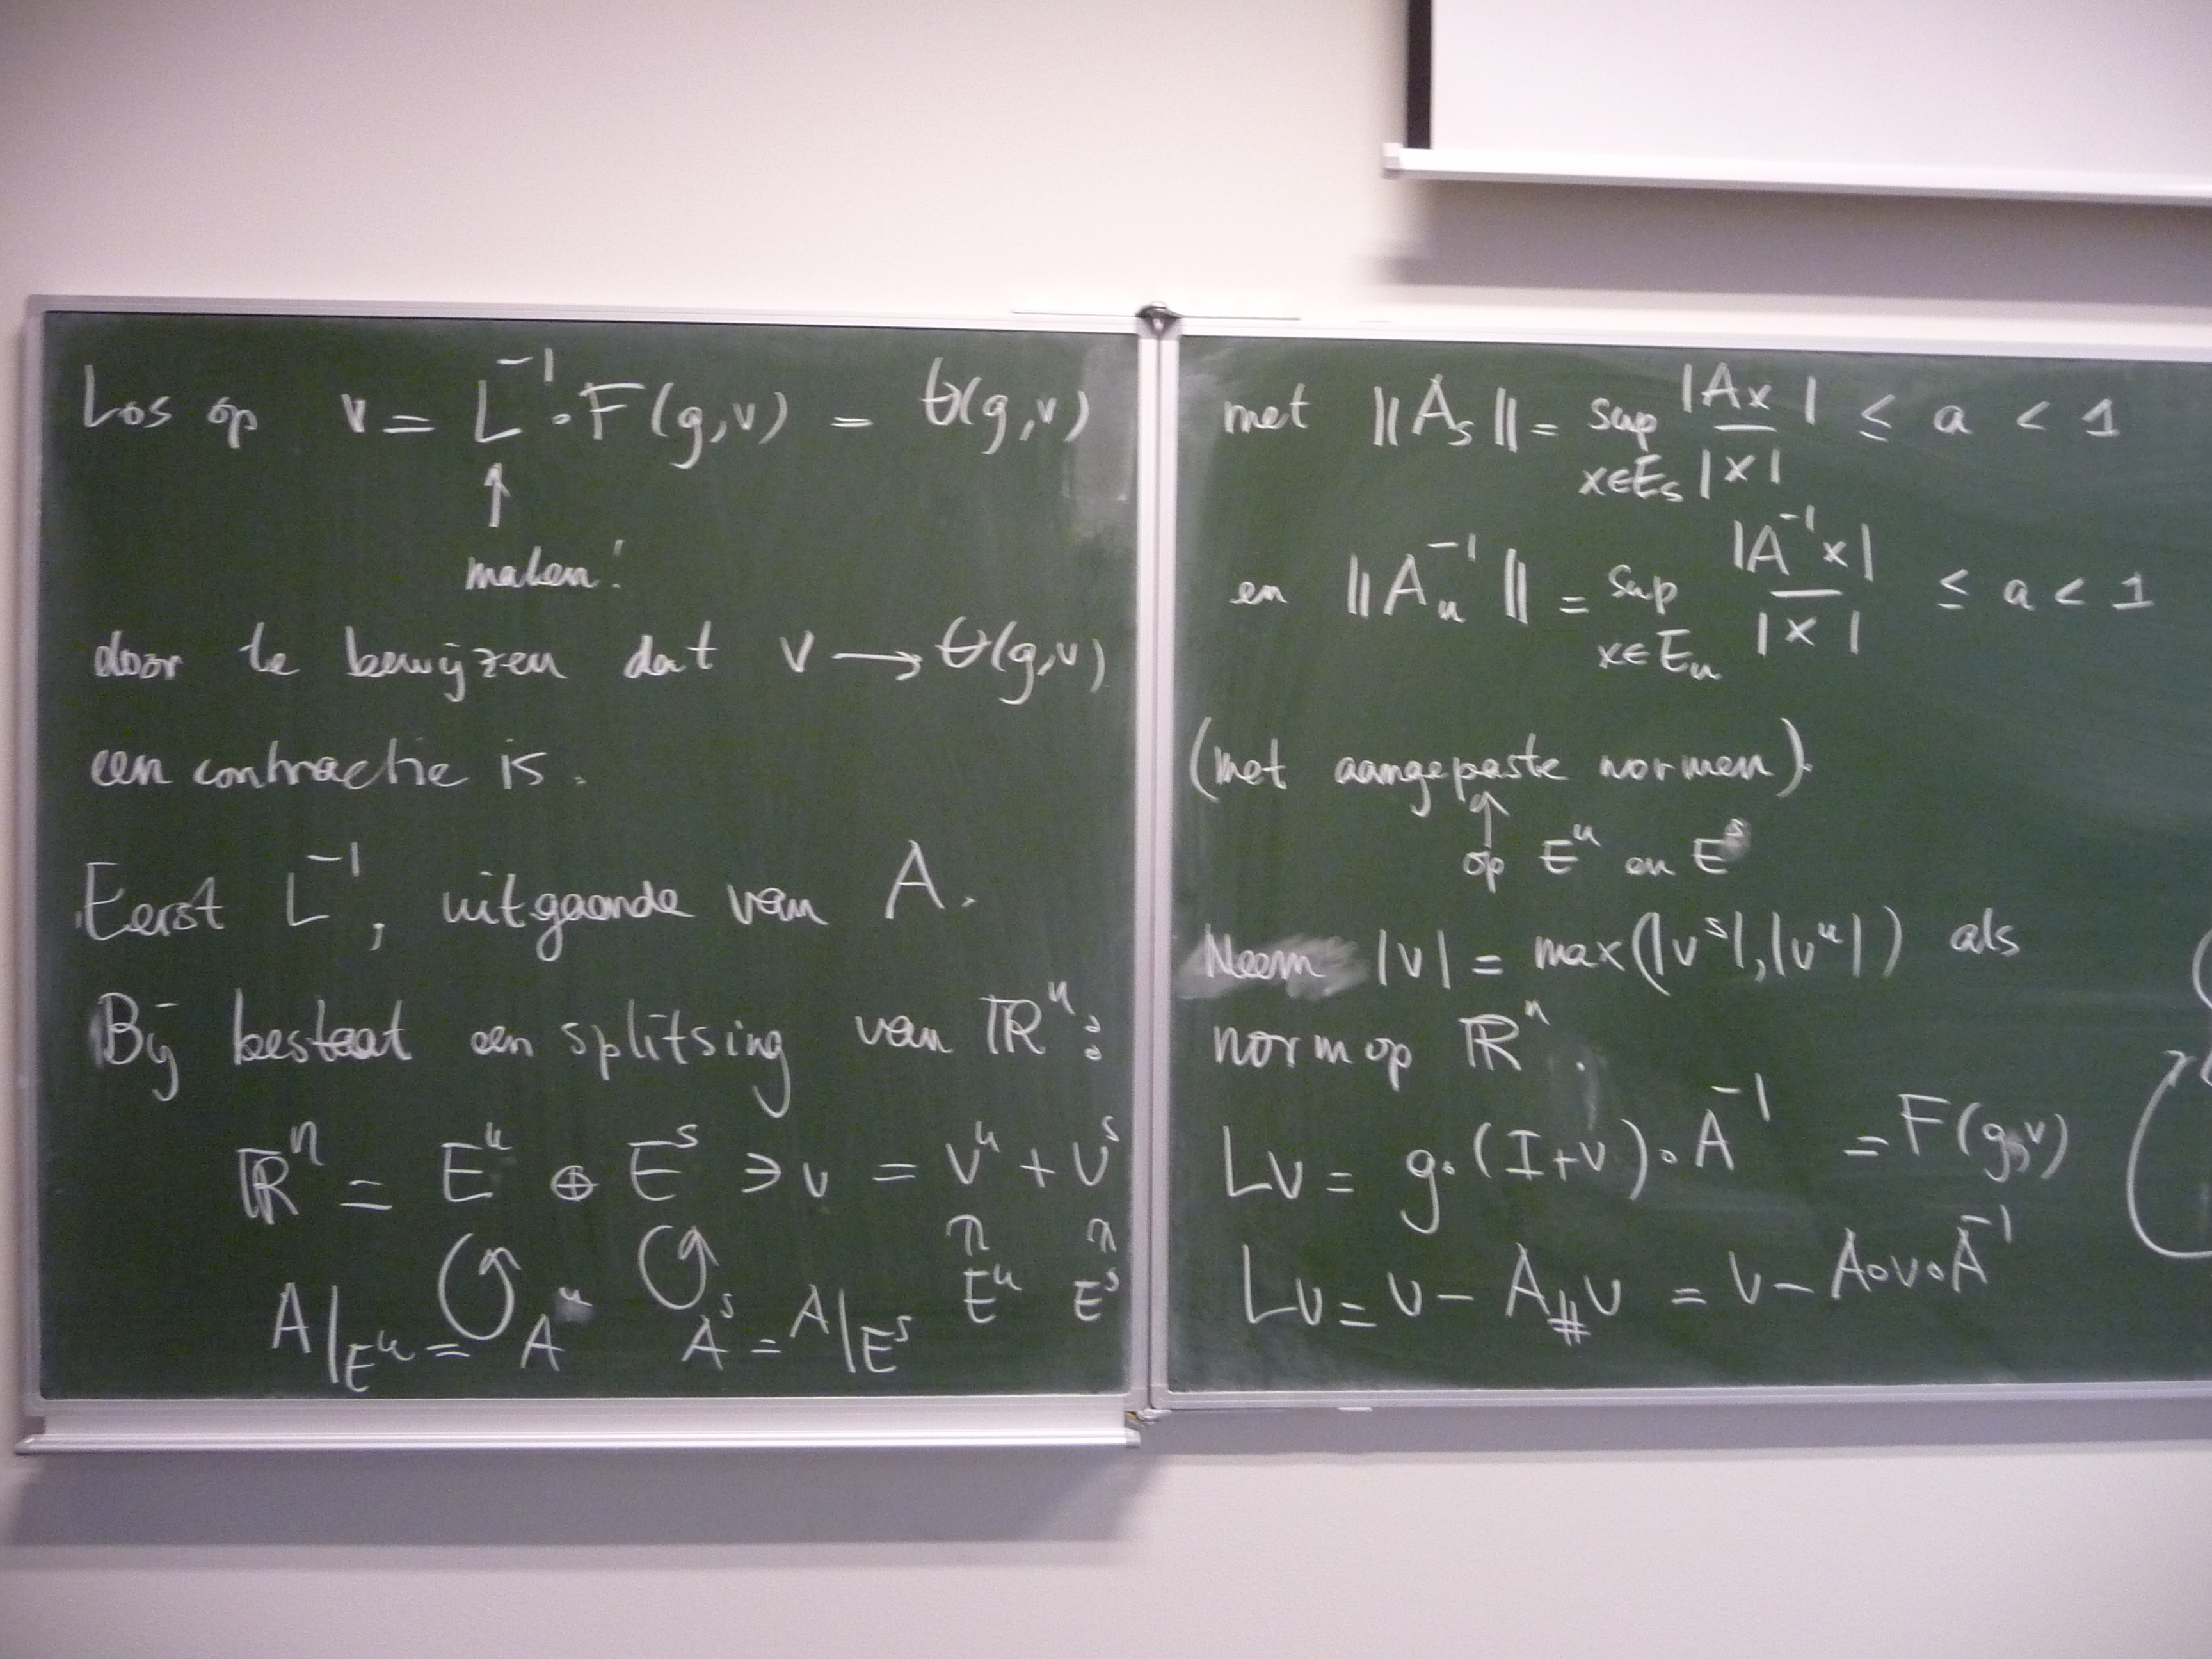 Los op v = L⁻¹∘F(g,v) = G(g,v)
↑
maken!
door te bewijzen dat v → G(g,v)
een contractie is.
Eerst L⁻¹, uitgaande van A.
Bij bestaat een splitsing van ℝⁿ:
ℝⁿ = Eᵘ ⊕ Eˢ ∋ v = vᵘ + vˢ
∩ ∩
Eᵘ Eˢ
A|Eᵘ = Aᵘ Aˢ = A|Eˢ
met ||Aₛ|| = sup x∈Eₛ |Ax| / |x| ≤ a < 1
en ||Aᵤ⁻¹|| = sup x∈Eᵤ |A⁻¹x| / |x| ≤ a < 1
(met aangepaste normen).
↑
op Eᵘ en Eˢ
Neem |v| = max(|vˢ|,|vᵘ|) als
norm op ℝⁿ.
Lv = g∘(I+v)∘A⁻¹ = F(g,v)
Lv = v − A_# v = v − A∘v∘A⁻¹